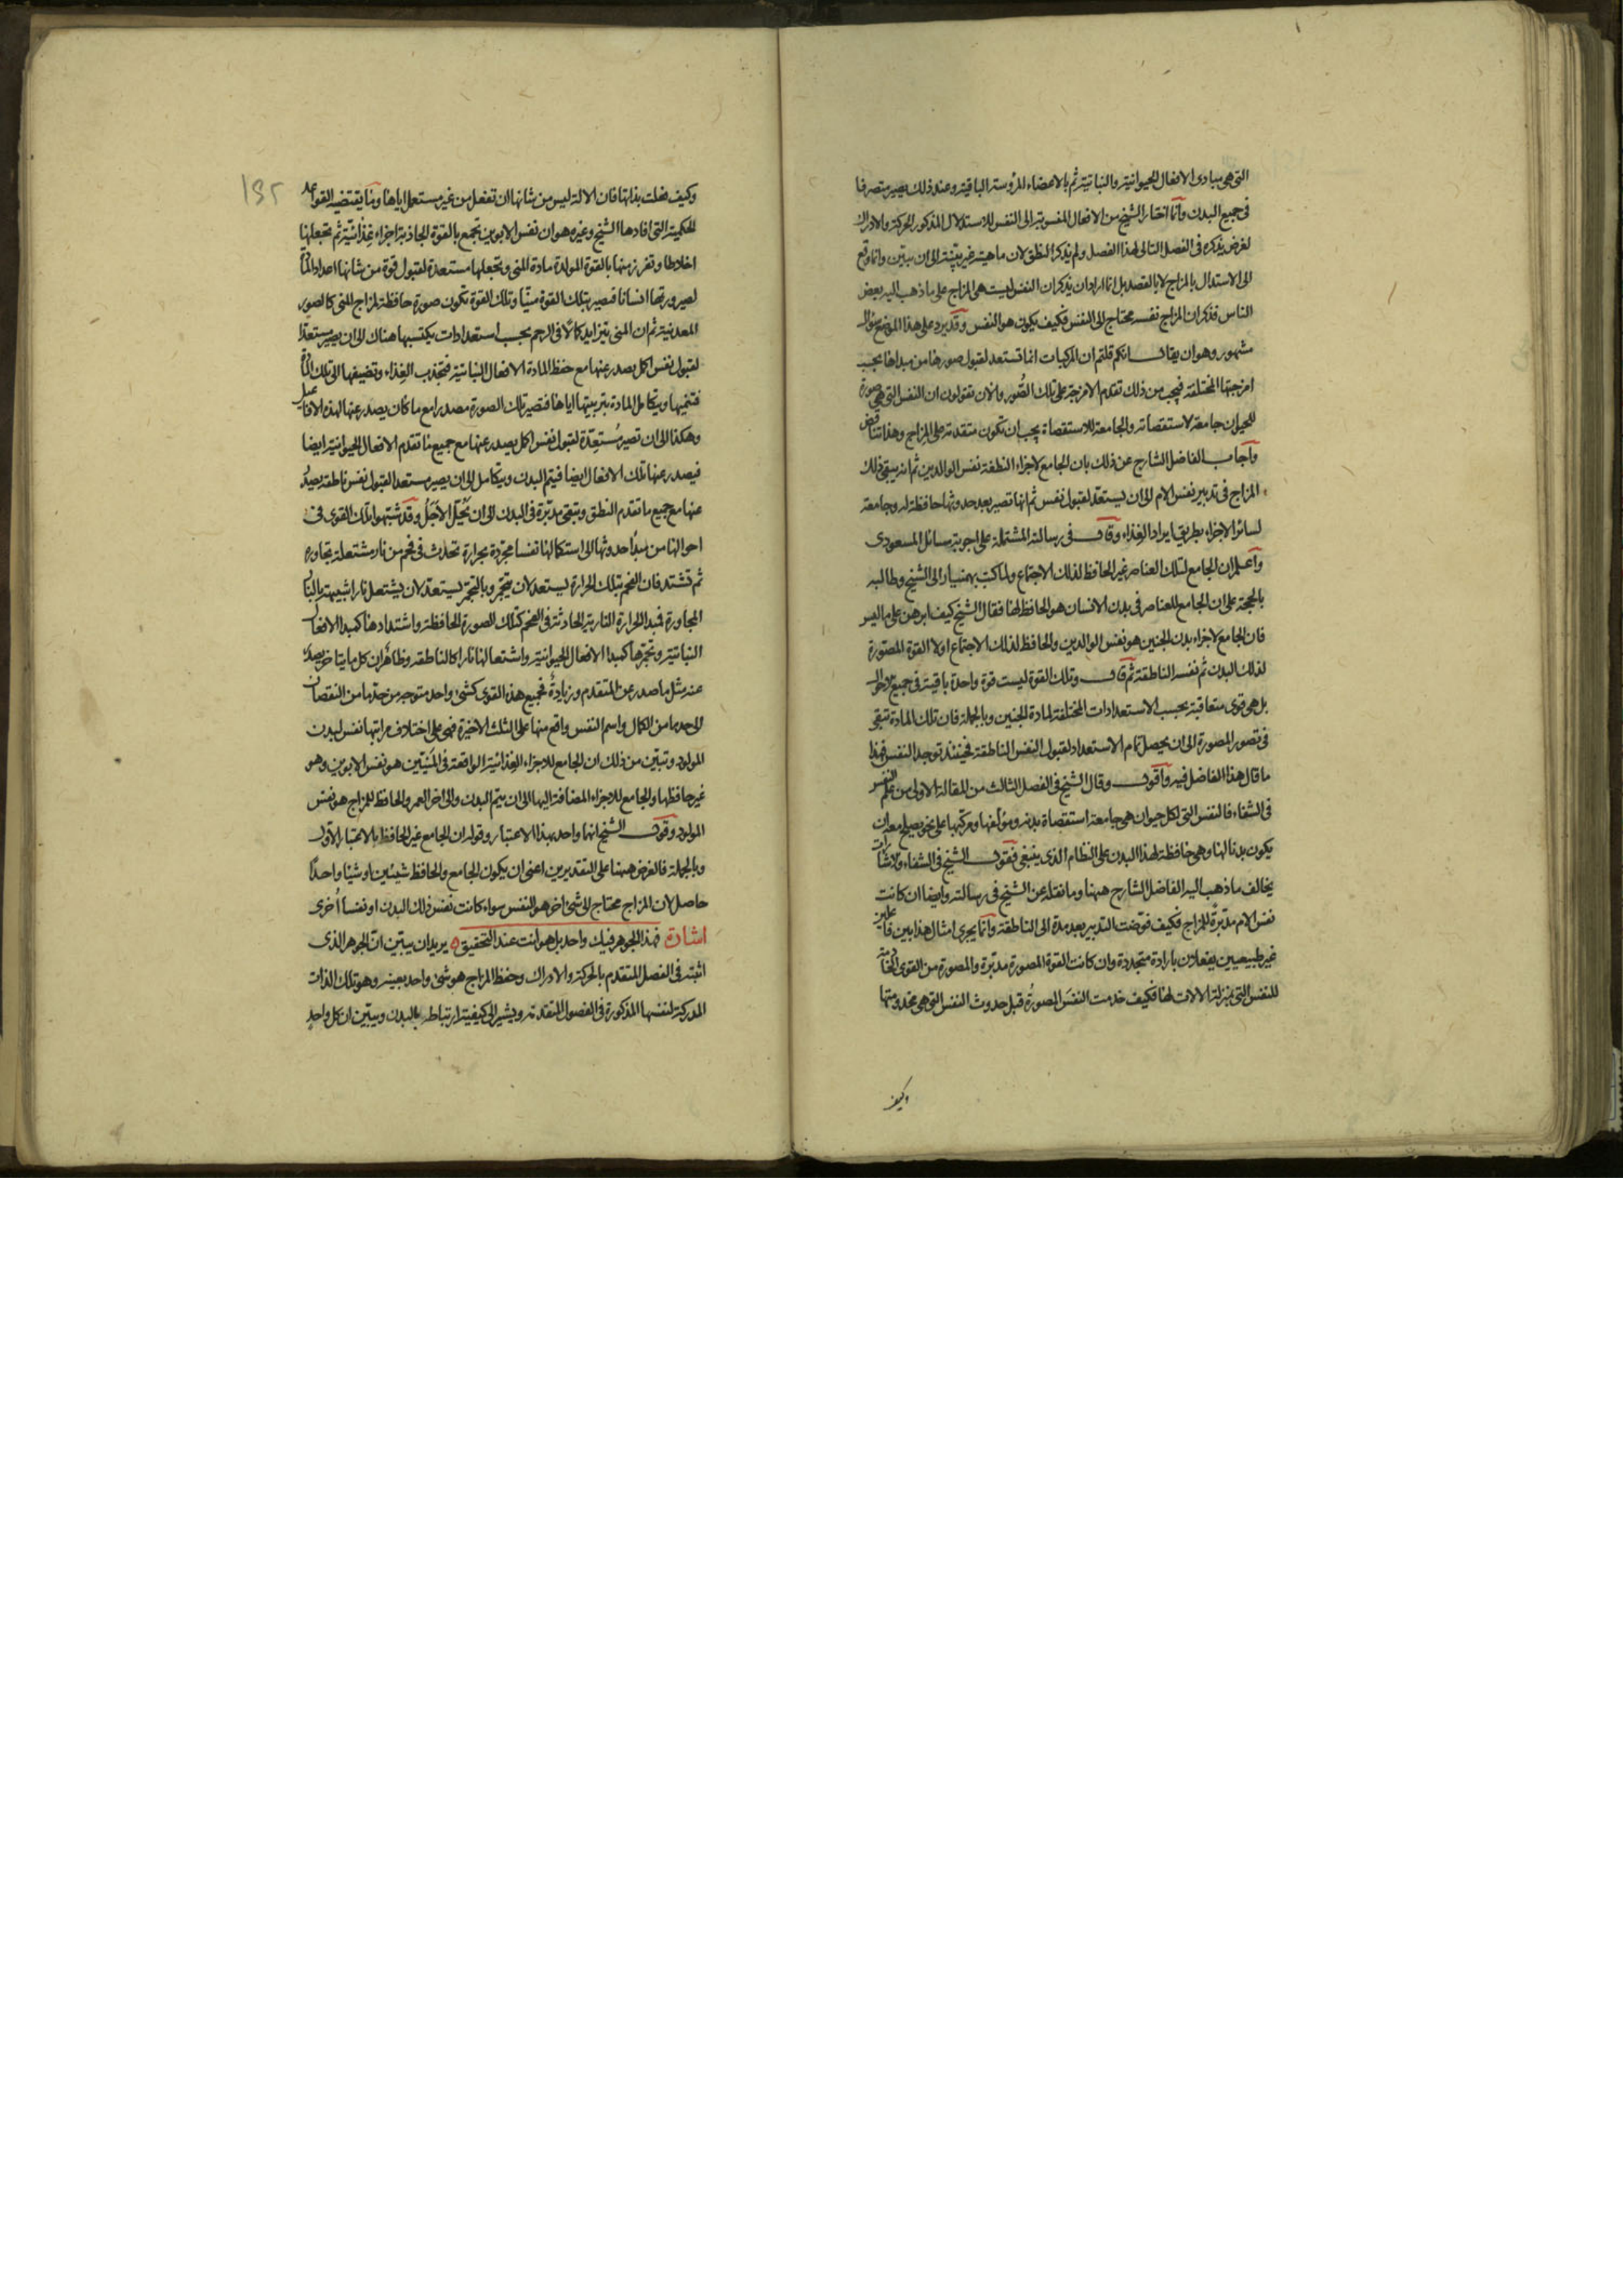 التى هى مبادى الافعال الحيوانية والنباتية ثم بالاعضاء المرؤسة الباقية وعند ذلك يصير متصرفا
فى جميع البدن وانما اختار الشيخ من الافعال المنسوبة الى النفس للاستدلال المذكور الحركة والادراك
لغرض يذكره فى الفصل التالى لهذا الفصل ولم يذكر النطق لان ماهيته غير بينة الى ان يبين وانما وقع
الى الاستدلال بالمزاج لا بالقصد بل انما اراد ان يذكر ان النفس ليست هى المزاج على ما ذهب اليه بعض
الناس فذكر ان المزاج نفسه محتاج الى النفس فكيف يكون هو النفس وقد يرد على هذا الموضع سؤال
مشهور وهو ان يقال انكم قلتم ان المركبات انما تستعد لقبول صورها من مبداها بحسب
امزجتها المختلفة فيجب من ذلك تقدم الامزجة على تلك الصور والان تقولون ان النفس التى هى صورة
للحيوان جامعة لاستقصاته والجامعة للاستقصاة يجب ان تكون متقدمة على المزاج وهذا تناقض
واجاب الفاضل الشارح عن ذلك بان الجامع لاجزاء النطفة نفس الوالدين ثم انه يبقى ذلك
المزاج فى تدبير نفس الام الى ان يستعد لقبول نفس ثم انها تصير بعد حدوثها حافظة له وجامعة
لسائر الاجزاء بطريق ايراد الغذاء وقال فى رسالته المشتملة على اجوبة مسائل المسعودى
واعلم ان الجامع لتلك العناصر غير الحافظ لذلك الاجتماع ولما كتب بهمنيار الى الشيخ وطالبه
بالحجة على ان الجامع للعناصر فى بدن الانسان هو الحافظ لها فقال الشيخ كيف ابرهن على ما ليس
فان الجامع لاجزاء بدن الجنين هو نفس الوالدين والحافظ لذلك الاجتماع اولا القوة المصورة
لذلك البدن ثم نفسه الناطقة ثم قال وتلك القوة ليست قوة واحدة باقية فى جميع الاحوال
بل هى قوى متعاقبة بحسب الاستعدادات المختلفة لمادة الجنين وبالجملة فان تلك المادة تبقى
فى تصور المصورة الى ان يحصل تمام الاستعداد لقبول النفس الناطقة فحينئذ توجد النفس فهذا
ما قال هذا الفاضل فيه واقول وقال الشيخ فى الفصل الثالث من المقالة الاولى من علم النفس
فى الشفاء فالنفس التى لكل حيوان هى جامعة استقصاة بدنه ومؤلفها ومركبها على نحو يصلح معه ان
يكون بدنا لها وهى حافظة لهذا البدن على النظام الذى ينبغى فقول الشيخ فى الشفاء والاشارات
يخالف ما ذهب اليه الفاضل الشارح ههنا وما نقله عن الشيخ فى رسالته وايضا ان كانت
نفس الام مدبرة للمزاج فكيف فوضت التدبير بعد مدة الى الناطقة وانما يجرى امثال هذا بين فاعلين
غير طبيعيين يفعلان بارادة متجددة وان كانت القوة المصورة مدبرة والمصورة من القوى الخادمة
للنفس التى بمنزلة الالات لها فكيف خدمت النفس المصورة قبل حدوث النفس التى هى مخدومتها
وكيف
١٣٢
وكيف فعلت بذلتها فان الالة ليس من شانها ان تفعل من غير مستعمل اياها وما يقتضيه القواعد
الحكمية التى افادها الشيخ وغيره هو ان نفس الابوين تجمع بالقوة الجاذبة اجزاء غذائية ثم تجعلها
اخلاطا وتفرز منها بالقوة المولدة مادة المنى وتجعلها مستعدة لقبول قوة من شانها اعداد المادة
لصيرورتها انسانا فتصير بتلك القوة منيا وتلك القوة تكون صورة حافظة لمزاج المنى كالصور
المعدنية ثم ان المنى يتزايد كمالا فى الرحم بحسب استعدادات يكتسبها هناك الى ان يصير مستعدا
لقبول نفس اكمل يصدر عنها مع حفظ المادة الافعال النباتية فتجذب الغذاء وتضيفها الى تلك المادة
فتنميها ويتكامل المادة بتربيتها اياها فتصير تلك الصورة مصدرا مع ما كان يصدر عنها لهذه الافاعيل
وهكذا الى ان تصير مستعدة لقبول نفس اكمل يصدر عنها مع جميع ما تقدم الافعال الحيوانية ايضا
فيصدر عنها تلك الافعال ايضا فيتم البدن ويتكامل الى ان يصير مستعدا لقبول نفس ناطقة يصدر
عنها مع جميع ما تقدم النطق وتبقى مدبرة فى البدن الى ان يحل الاجل وقد شبهوا تلك القوى فى
احوالها من مبدأ حدوثها الى استكمالها نفسا مجردة بحرارة تحدث فى فحم من نار مشتعلة تجاوره
ثم تشتد فان الفحم بتلك الحرارة يستعد لان يتجمر وبالتجمر يستعد لان يشتعل نارا شبيهة بالنار
المجاورة فمبدا الحرارة النارية الحادثة فى الفحم كتلك الصورة الحافظة واشتدادها كمبدا الافعال
النباتية وتجمرها كمبدا الافعال الحيوانية واشتعالها نارا كالناطقة وظاهر ان كل ما يتاخر يصدر
عنه مثل ما صدر عن المتقدم وزيادة فجميع هذه القوى كشئ واحد متوجه من حد ما من النقصان
الى حد ما من الكمال واسم النفس واقع منها على الثلث الاخيرة فهى على اختلاف مراتبها نفس لبدن
المولود وتبين من ذلك ان الجامع للاجزاء الغذائية الواقعة فى المنيين هو نفس الابوين وهو
غير حافظها والجامع للاجزاء المضافة اليها الى ان يتم البدن والى اخر العمر والحافظ للمزاج هو نفس
المولود وقول الشيخ انها واحد بهذا الاعتبار وقوله ان الجامع غير الحافظ بالاعتبار الاول
وبالجملة فالغرض ههنا على التقديرين اعنى ان يكون الجامع والحافظ شيئين او شيئا واحدا
حاصل لان المزاج محتاج الى شئ اخر هو النفس سواء كانت نفس ذلك البدن او نفسا أخرى
اشارة فهذا الجوهر فيك واحد بل هو انت عند التحقيق ه يريد ان يبين ان الجوهر الذى
اثبته فى الفصل المتقدم بالحركة والادراك وحفظ المزاج هو شئ واحد بعينه وهو تلك الذات
المدركة لنفسها المذكورة فى الفصول المتقدمة ويشير الى كيفية ارتباطه بالبدن ويبين ان كل واحد